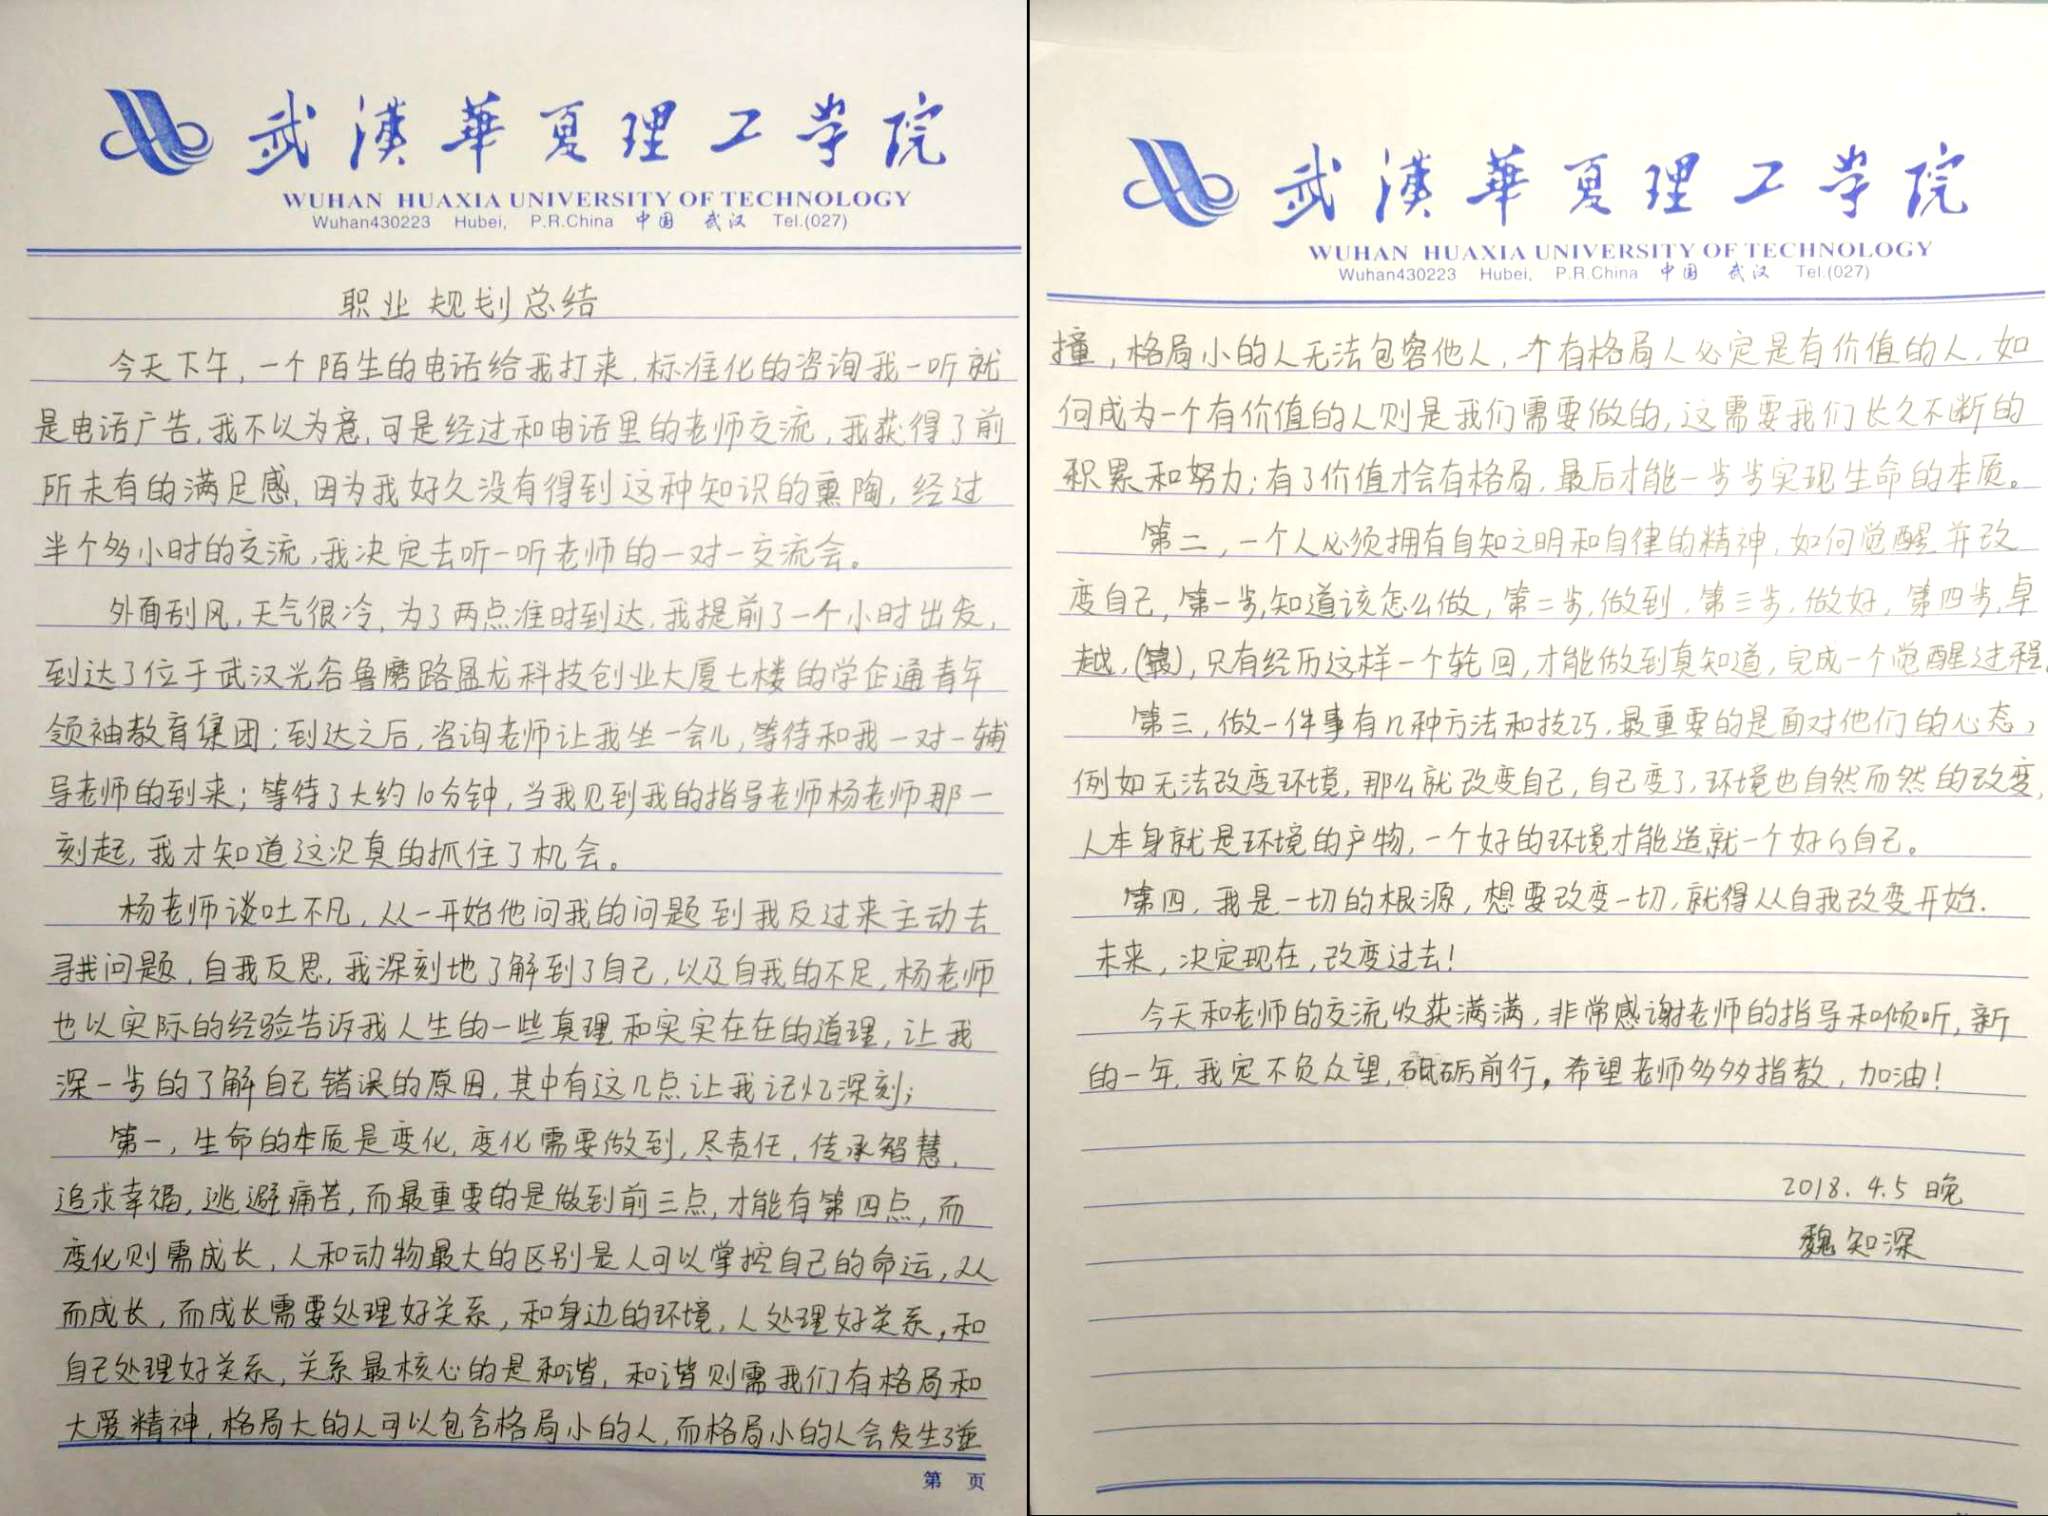 武漢華夏理工学院
WUHAN HUAXIA UNIVERSITY OF TECHNOLOGY
Wuhan430223 Hubei, P.R.China 中国 武汉 Tel.(027)
职业规划总结
今天下午，一个陌生的电话给我打来，标准化的咨询我一听就
是电话广告，我不以为意，可是经过和电话里的老师交流，我获得了前
所未有的满足感，因为我好久没有得到这种知识的熏陶，经过
半个多小时的交流，我决定去听一听老师的一对一交流会。
外面刮风，天气很冷，为了两点准时到达，我提前了一个小时出发，
到达了位于武汉光谷鲁磨路盈龙科技创业大厦七楼的学企通青年
领袖教育集团；到达之后，咨询老师让我坐一会儿，等待和我一对一辅
导老师的到来；等待了大约10分钟，当我见到我的指导老师杨老师那一
刻起，我才知道这次真的抓住了机会。
杨老师谈吐不凡，从一开始他问我的问题到我反过来主动去
寻找问题，自我反思，我深刻地了解到了自己，以及自我的不足，杨老师
也以实际的经验告诉我人生的一些真理和实实在在的道理，让我
深一步的了解自己错误的原因，其中有这几点让我记忆深刻；
第一，生命的本质是变化，变化需要做到，尽责任，传承智慧，
追求幸福，逃避痛苦，而最重要的是做到前三点，才能有第四点，而
变化则需成长，人和动物最大的区别是人可以掌控自己的命运，从
而成长，而成长需要处理好关系，和身边的环境，人处理好关系，和
自己处理好关系，关系最核心的是和谐，和谐则需我们有格局和
大爱精神，格局大的人可以包含格局小的人，而格局小的人会发生碰
第 页
武漢華夏理工学院
WUHAN HUAXIA UNIVERSITY OF TECHNOLOGY
Wuhan430223 Hubei, P.R.China 中国 武汉 Tel.(027)
撞，格局小的人无法包容他人，一个有格局人必定是有价值的人，如
何成为一个有价值的人则是我们需要做的，这需要我们长久不断的
积累和努力；有了价值才会有格局，最后才能一步步实现生命的本质。
第二，一个人必须拥有自知之明和自律的精神，如何觉醒并改
变自己，第一步，知道该怎么做，第二步，做到，第三步，做好，第四步，卓
越，只有经历这样一个轮回，才能做到真知道，完成一个觉醒过程。
第三，做一件事有几种方法和技巧，最重要的是面对他们的心态，
例如无法改变环境，那么就改变自己，自己变了，环境也自然而然的改变，
人本身就是环境的产物，一个好的环境才能造就一个好的自己。
第四，我是一切的根源，想要改变一切，就得从自我改变开始．
未来，决定现在，改变过去！
今天和老师的交流收获满满，非常感谢老师的指导和倾听，新
的一年，我定不负众望，砥砺前行，希望老师多多指教，加油！
2018.4.5 晚
魏知深